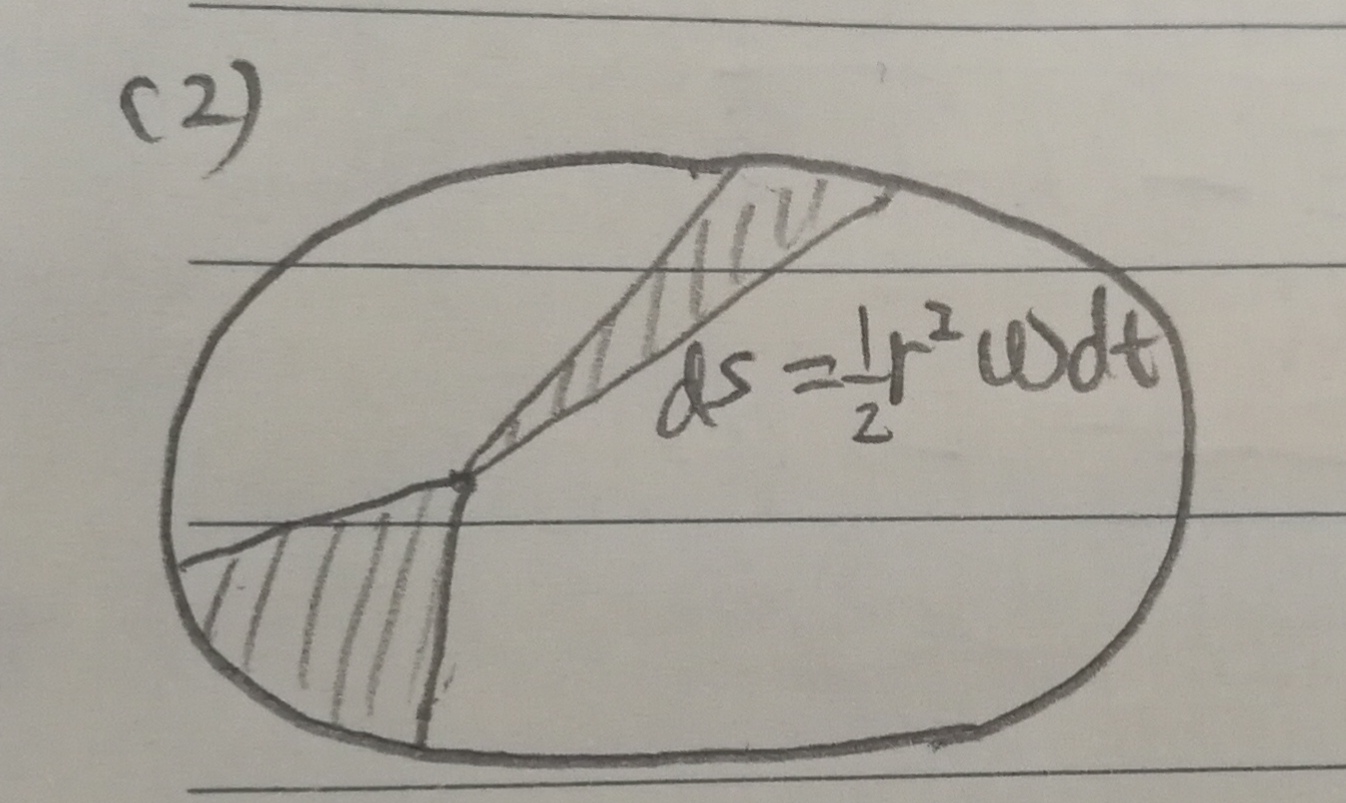 (2)
ds = 1/2 r² ωdt